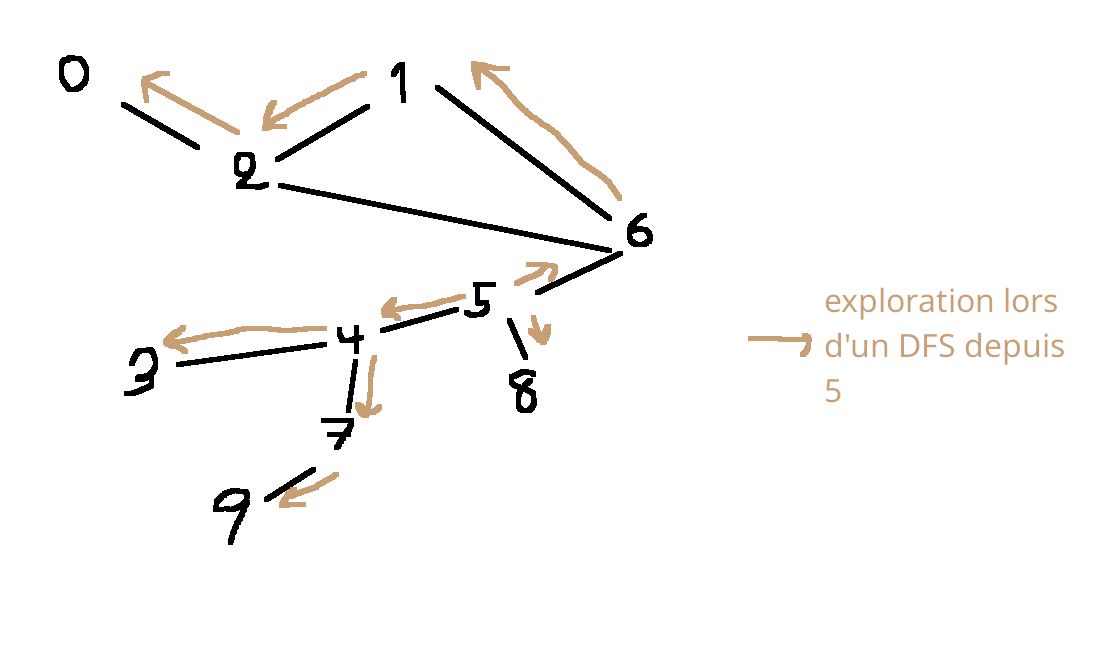 0
1
2
6
5
4
3
8
7
9
exploration lors
d'un DFS depuis
5